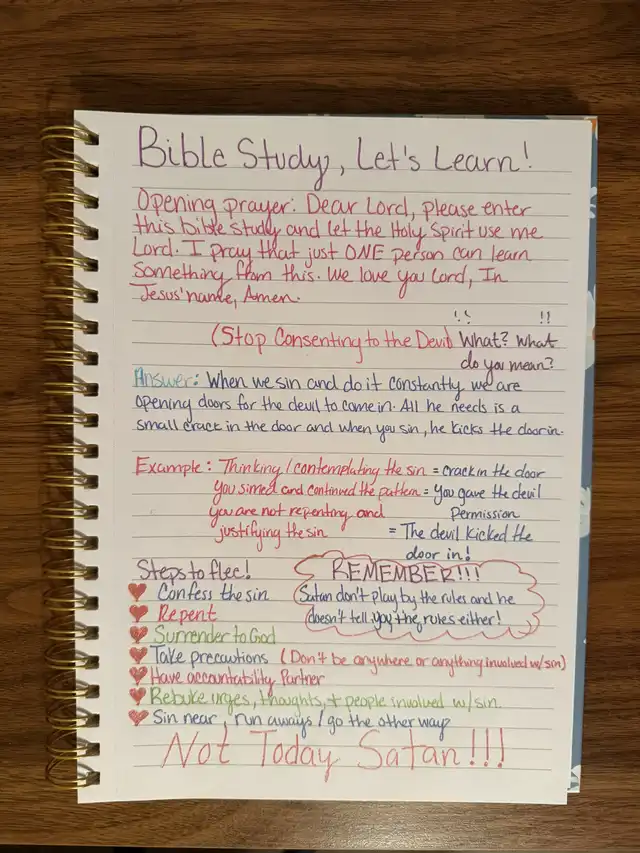 Bible Study, Let's Learn!
Opening prayer: Dear Lord, please enter
this bible study and let the Holy Spirit use me
Lord. I pray that just ONE person can learn
something from this. We love you Lord, In
Jesus' name, Amen.
!! !!
(Stop Consenting to the Devil What? What
do you mean?
Answer: When we sin and do it constantly we are
opening doors for the devil to come in. All he needs is a
small crack in the door and when you sin, he kicks the door in.
Example: Thinking/contemplating the sin = crack in the door
You sinned and continued the pattern = You gave the devil
Permission
you are not repenting and
justifying the sin = The devil kicked the
door in!
Steps to flee!
Confess the sin
Repent
Surrender to God
Take precautions (Don't be anywhere or anything involved w/sin)
Have accountability Partner
Rebuke urges, thoughts, + people involved w/sin.
Sin near, run aways/go the other way
REMEMBER!!!
Satan don't play by the rules and he
doesn't tell you the rules either!
Not Today Satan!!!